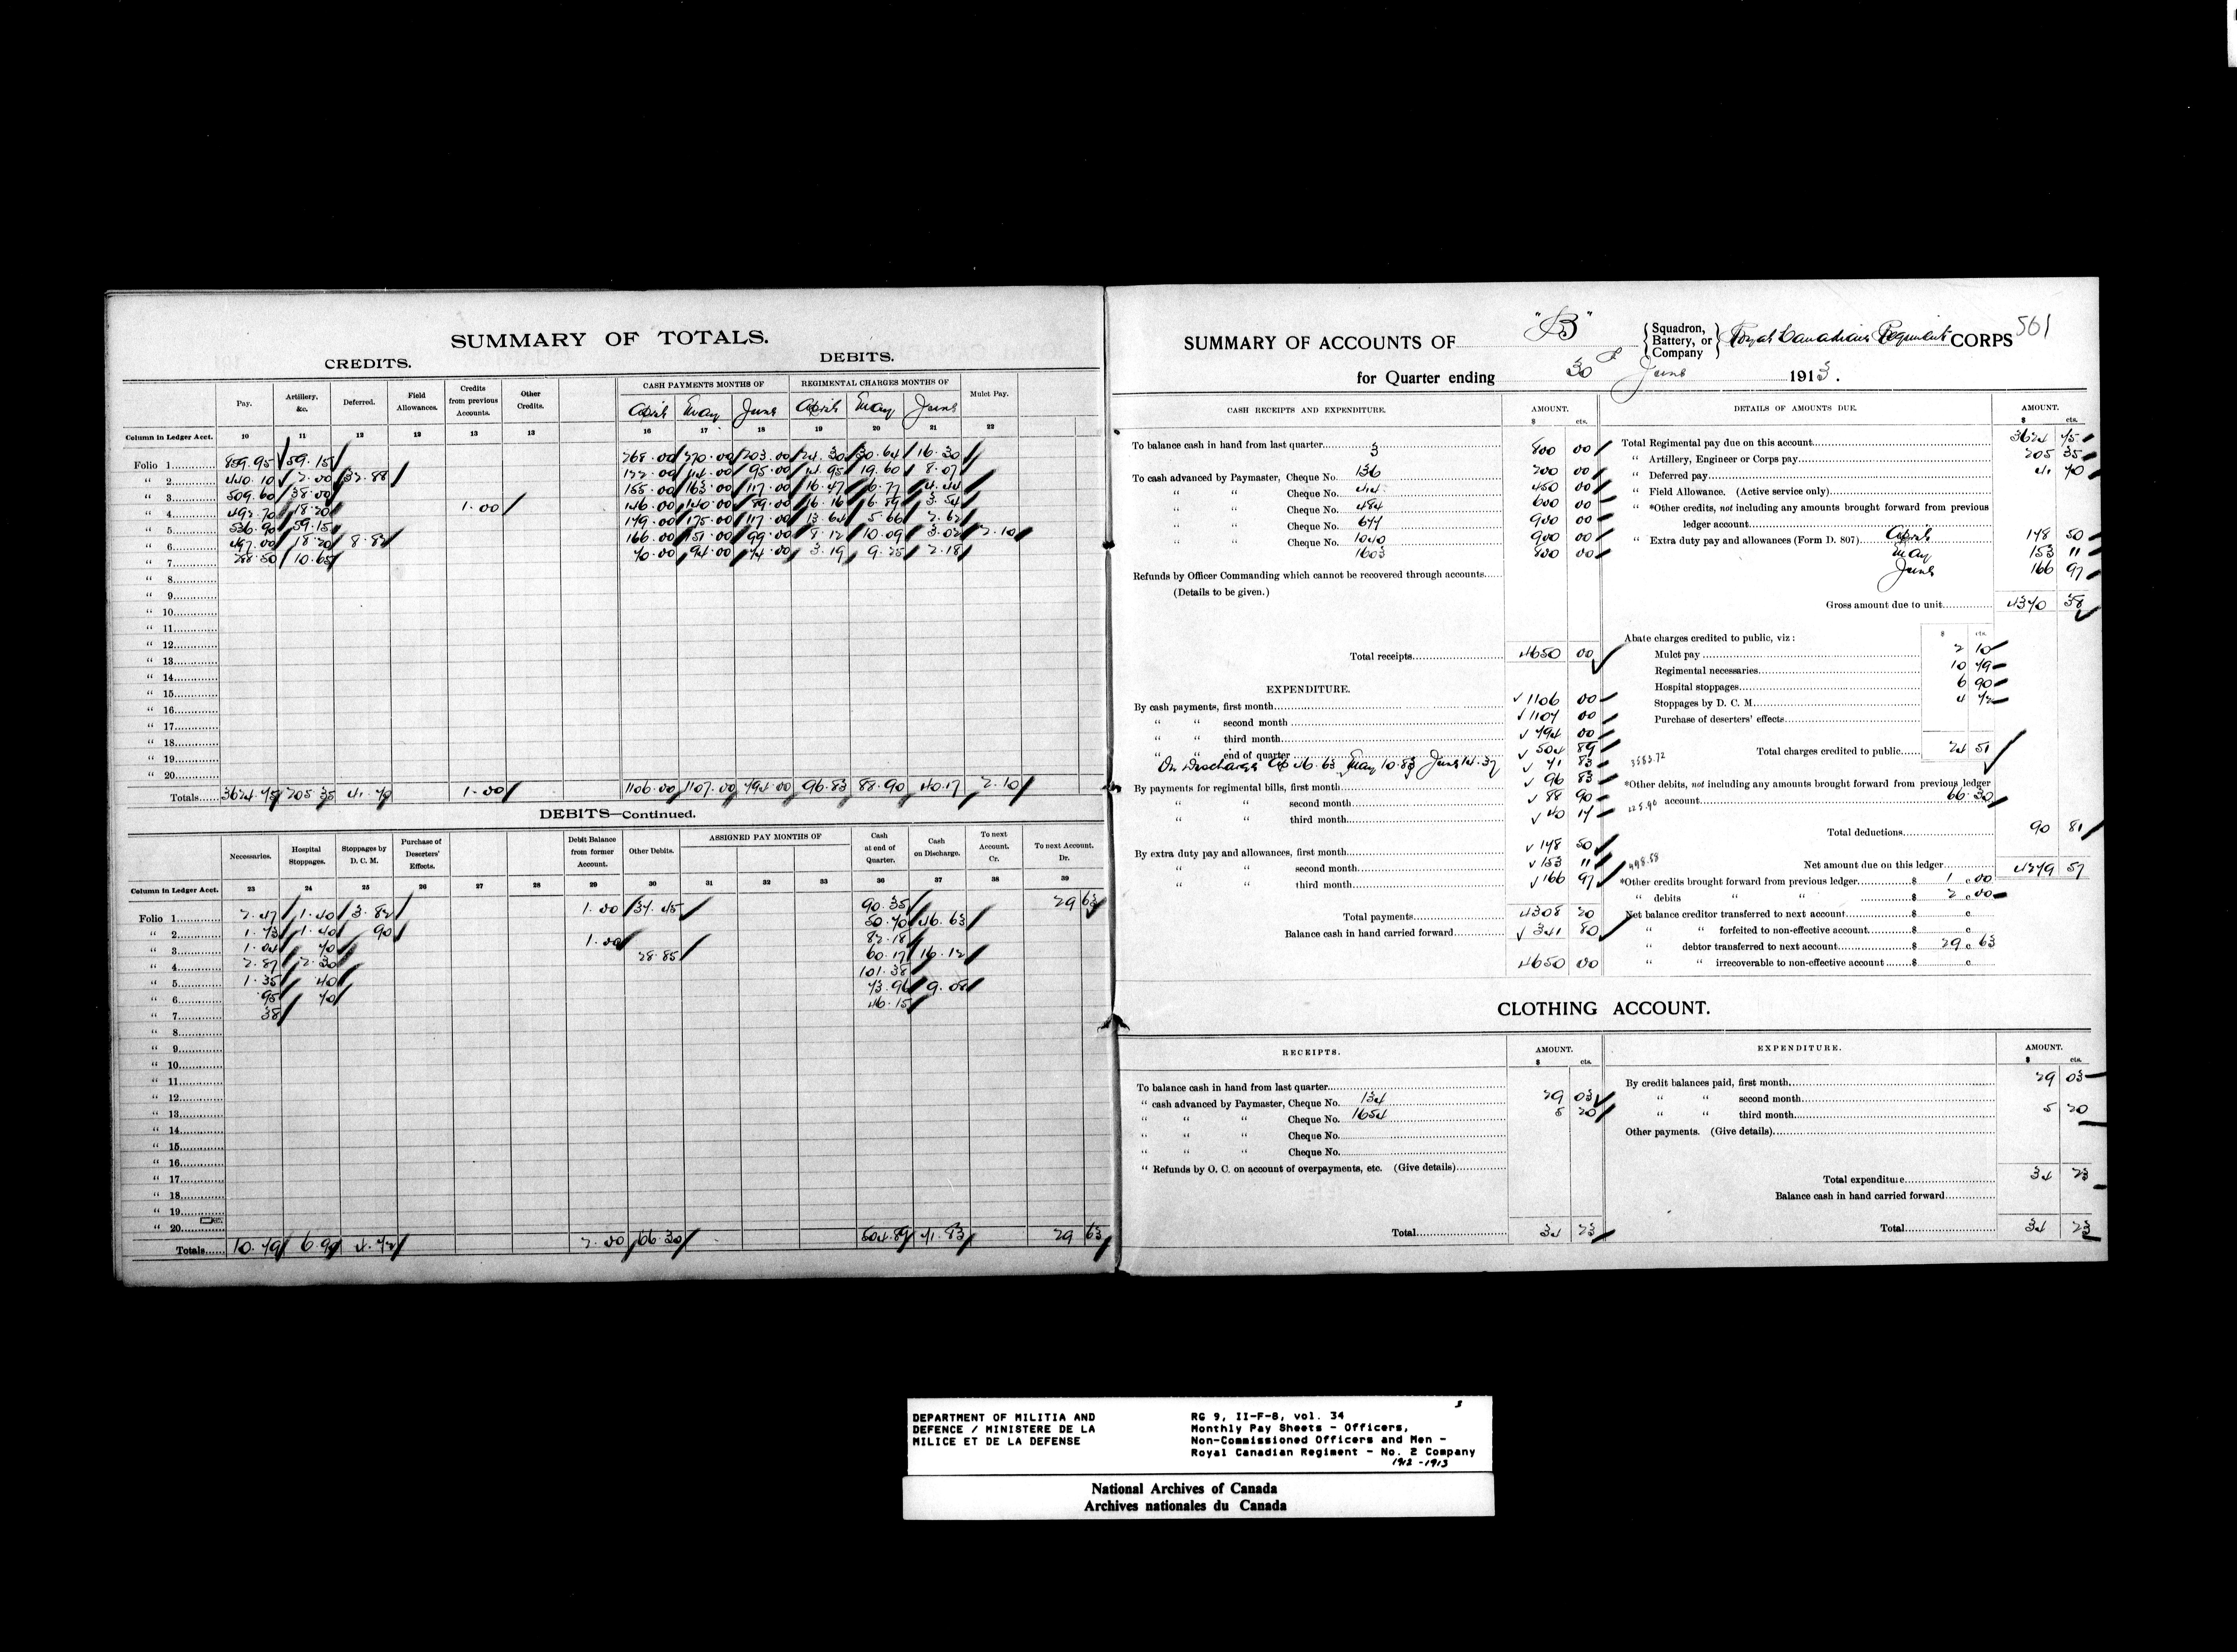 SUMMARY OF TOTALS.
CREDITS.
DEBITS.
Pay. Artillery, &c. Deferred. Field Allowances. Credits from previous Accounts. Other Credits. CASH PAYMENTS MONTHS OF REGIMENTAL CHARGES MONTHS OF Mulct Pay.
April May June April May June
Column in Ledger Acct. 10 11 12 12 13 13 16 17 18 19 20 21 22
Folio 1 859.95 59.15 268.00 270.00 203.00 24.30 30.64 16.30
" 2 440.10 2.00 32.88 122.00 114.00 95.00 14.95 19.60 8.07
" 3 509.60 38.00 155.00 163.00 117.00 16.47 6.77 4.44
" 4 492.70 18.20 1.00 146.00 140.00 89.00 16.16 6.89 3.54
" 5 536.90 59.15 149.00 175.00 117.00 13.64 5.66 2.62
" 6 497.00 18.20 8.82 166.00 151.00 99.00 8.12 10.09 3.02 2.10
" 7 288.50 10.65 70.00 94.00 74.00 3.19 9.25 2.18
" 8
" 9
" 10
" 11
" 12
" 13
" 14
" 15
" 16
" 17
" 18
" 19
" 20
Totals 3624.75 205.35 41.70 1.00 1106.00 1107.00 794.00 96.83 88.90 40.17 2.10
DEBITS—Continued.
Necessaries. Hospital Stoppages. Stoppages by D. C. M. Purchase of Deserters' Effects. Debit Balance from former Account. Other Debits. ASSIGNED PAY MONTHS OF Cash at end of Quarter. Cash on Discharge. To next Account. Cr. To next Account. Dr.
Column in Ledger Acct. 23 24 25 26 27 28 29 30 31 32 33 36 37 38 39
Folio 1 2.47 1.40 3.82 1.00 37.45 90.35 29 63
" 2 1.73 1.40 90 50.70 46.63
" 3 1.04 70 1.00 82.18
" 4 2.87 2.30 28.85 60.17 16.12
" 5 1.35 40 101.38
" 6 95 70 73.96 9.08
" 7 38 46.15
" 8
" 9
" 10
" 11
" 12
" 13
" 14
" 15
" 16
" 17
" 18
" 19
" 20
Totals 10.79 6.90 4.72 2.00 66.30 504.89 71.83 29 63
SUMMARY OF ACCOUNTS OF "B" Squadron, Battery, or Company Royal Canadian Regiment CORPS 561
for Quarter ending 30th June 1913.
CASH RECEIPTS AND EXPENDITURE. AMOUNT. $ cts.
To balance cash in hand from last quarter 3 800 00
To cash advanced by Paymaster, Cheque No. 136 200 00
" " Cheque No. 414 450 00
" " Cheque No. 484 600 00
" " Cheque No. 677 900 00
" " Cheque No. 1040 900 00
1603 800 00
Refunds by Officer Commanding which cannot be recovered through accounts
(Details to be given.)
Total receipts 4650 00
EXPENDITURE.
By cash payments, first month 1106 00
" " second month 1107 00
" " third month 794 00
" " end of quarter 504 89
On Discharge Ap 46.63 May 10.83 June 14.37 71 83
By payments for regimental bills, first month 96 83
" " second month 88 90
" " third month 40 17
By extra duty pay and allowances, first month 148 50
" " second month 153 11
" " third month 166 97
Total payments 4308 20
Balance cash in hand carried forward 341 80
4650 00
DETAILS OF AMOUNTS DUE. AMOUNT. $ cts.
Total Regimental pay due on this account 3624 75
" Artillery, Engineer or Corps pay 205 35
" Deferred pay 41 70
" Field Allowance. (Active service only)
" *Other credits, not including any amounts brought forward from previous
ledger account
" Extra duty pay and allowances (Form D. 807) April 148 50
May 153 11
June 166 97
Gross amount due to unit 4340 38
Abate charges credited to public, viz: $ cts.
Mulct pay 2 10
Regimental necessaries 10 79
Hospital stoppages 6 90
Stoppages by D. C. M. 4 72
Purchase of deserters' effects
3583.72
Total charges credited to public 24 51
*Other debits, not including any amounts brought forward from previous ledger
225.90 account 66.30
Total deductions 90 81
498.58
Net amount due on this ledger 4249 57
*Other credits brought forward from previous ledger $ 1 c. 00
" debits " " $ 2 c. 00
Net balance creditor transferred to next account $ c
" " forfeited to non-effective account $ c
" debtor transferred to next account $ 29 c 63
" " irrecoverable to non-effective account $ c
CLOTHING ACCOUNT.
RECEIPTS. AMOUNT. $ cts.
To balance cash in hand from last quarter
" cash advanced by Paymaster, Cheque No. 134 29 03
" " " Cheque No. 1654 5 20
" " " Cheque No.
" " " Cheque No.
" Refunds by O. C. on account of overpayments, etc. (Give details)
Total 34 23
EXPENDITURE. AMOUNT. $ cts.
By credit balances paid, first month 29 03
" " second month
" " third month 5 20
Other payments. (Give details)
Total expenditure 34 23
Balance cash in hand carried forward
Total 34 23
3
DEPARTMENT OF MILITIA AND
DEFENCE / MINISTERE DE LA
MILICE ET DE LA DEFENSE
RG 9, II-F-8, vol. 34
Monthly Pay Sheets - Officers,
Non-Commissioned Officers and Men -
Royal Canadian Regiment - No. 2 Company
1912-1913
National Archives of Canada
Archives nationales du Canada